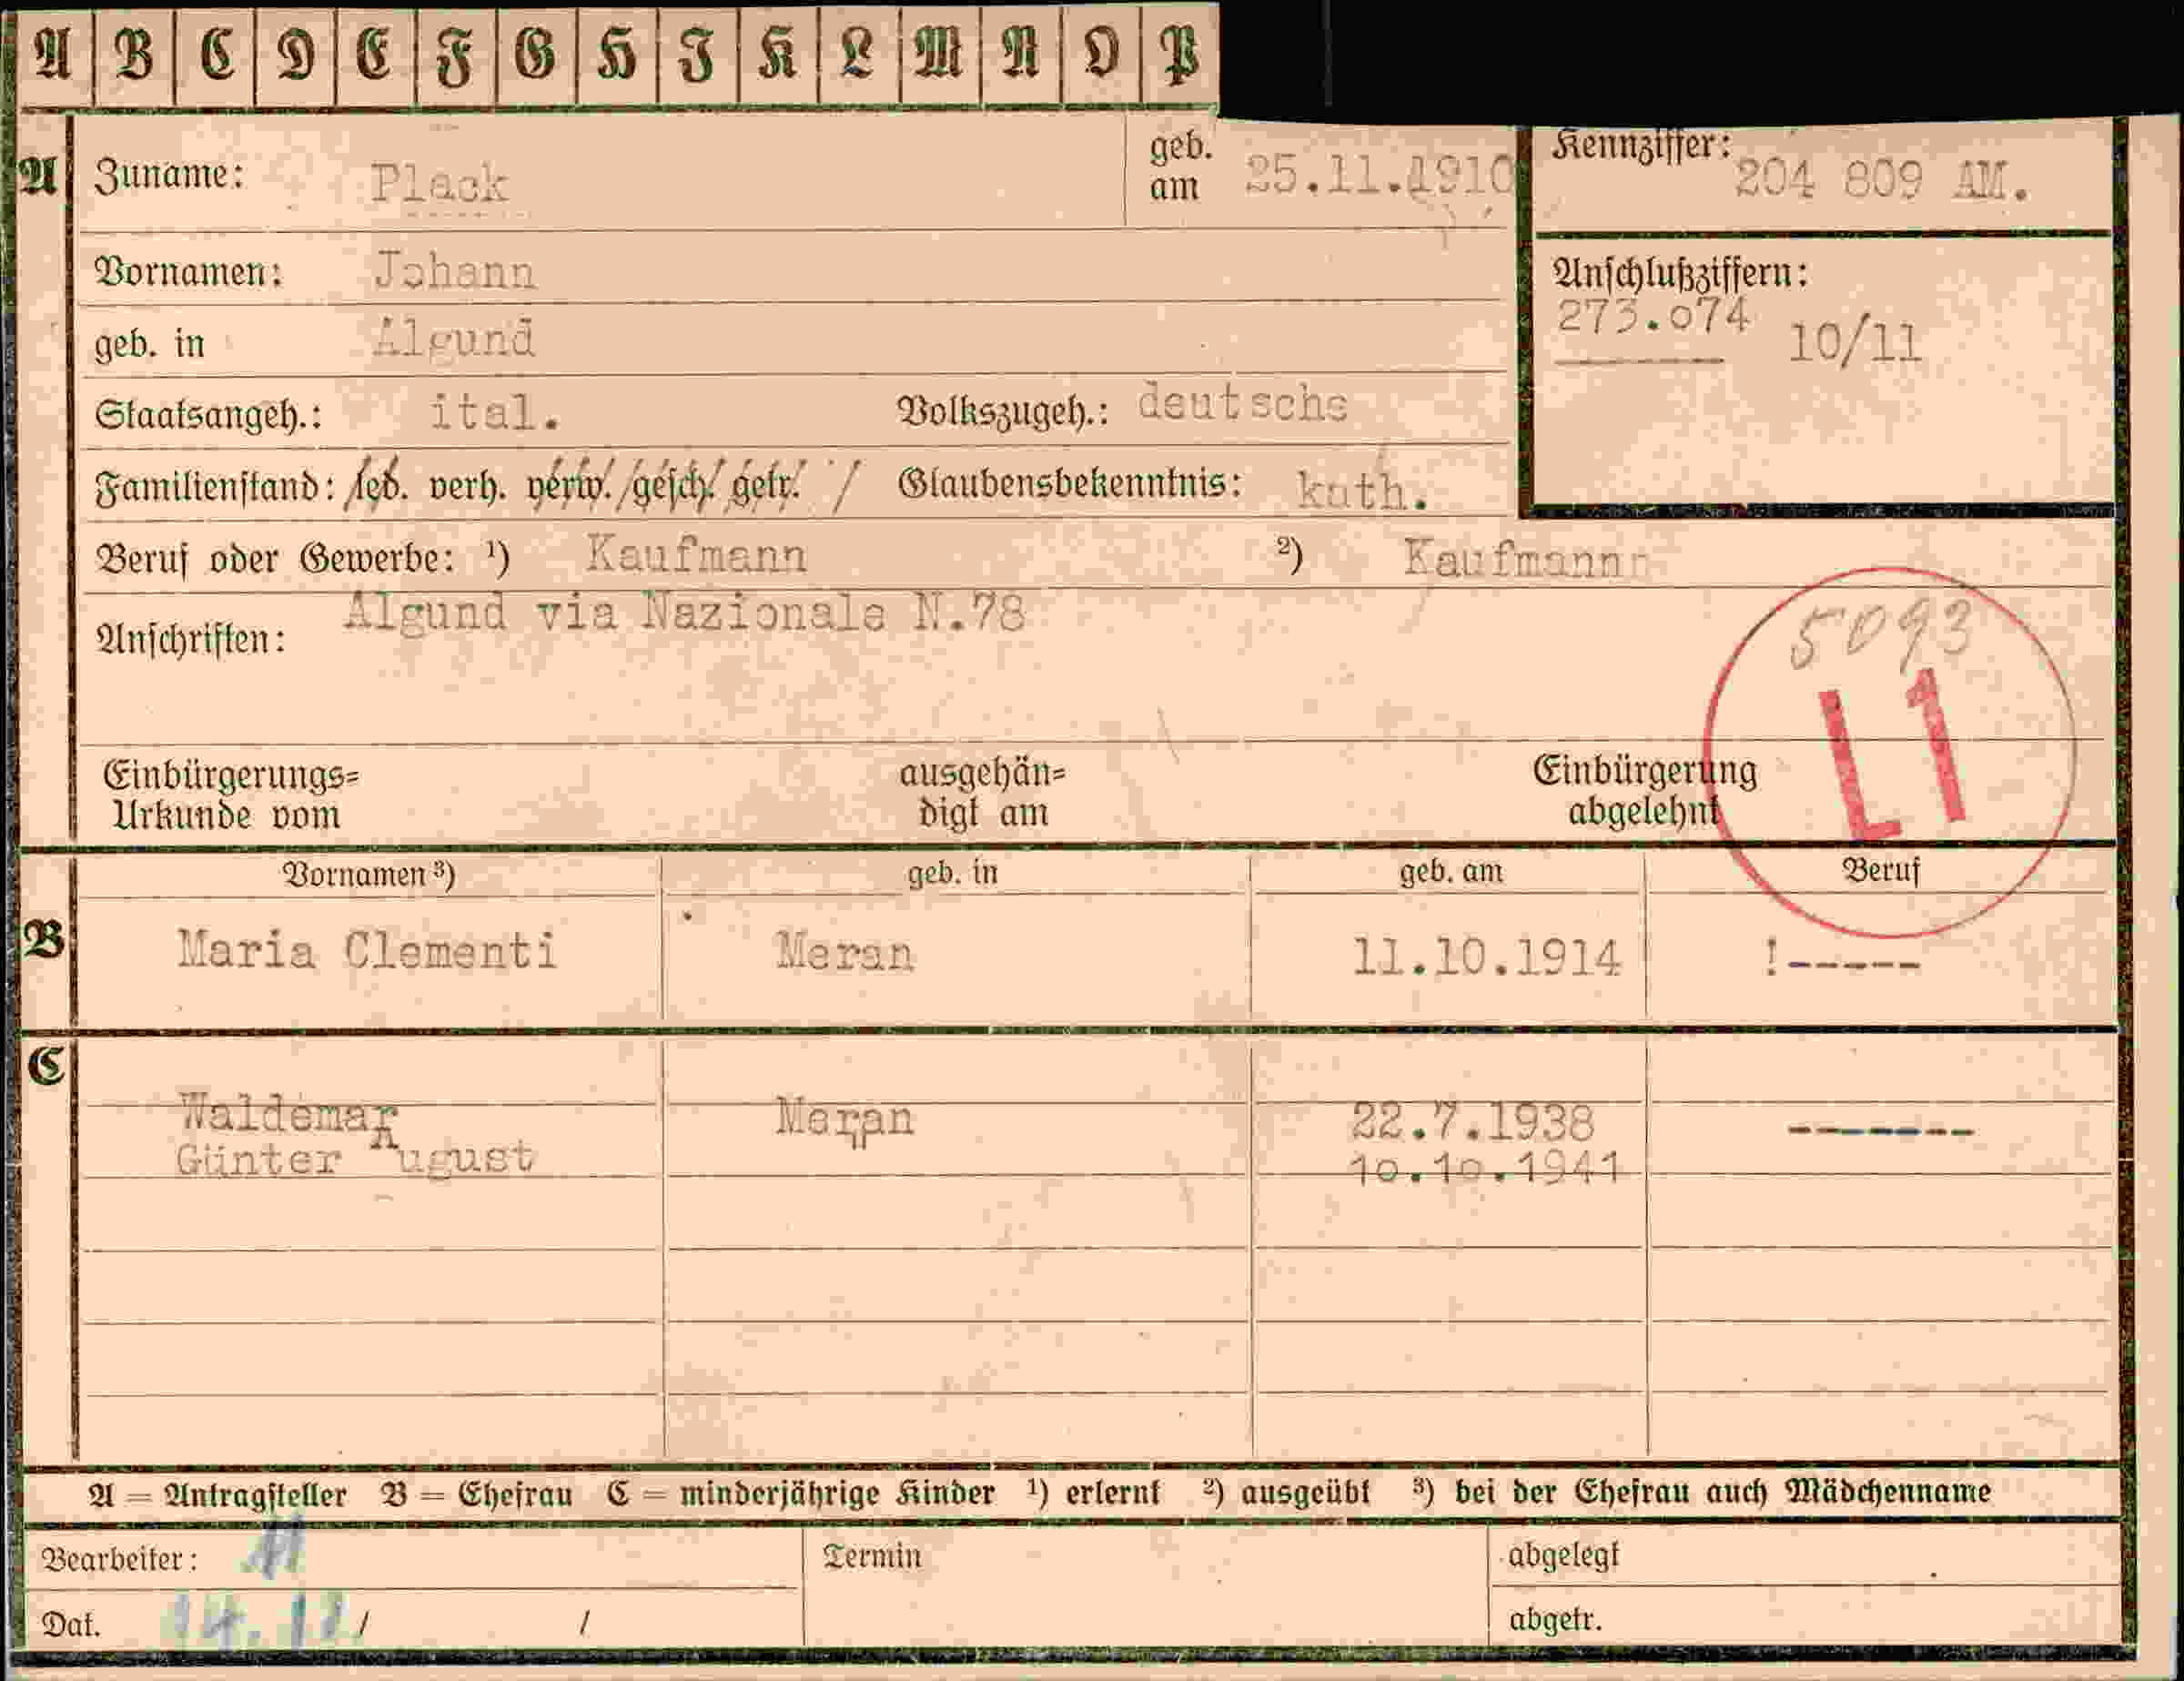 A B C D E F G H I K L M N O P
A Zuname: Plack geb. am 25.11.1910 Kennziffer: 204 809 AM.
Vornamen: Johann
Anschlußziffern:
273.074 10/11
geb. in Algund
Staatsangeh.: ital. Volkszugeh.: deutschs
Familienstand: led. verh. verw. gesch. getr. Glaubensbekenntnis: kath.
Beruf oder Gewerbe: ¹) Kaufmann ²) Kaufmann
Anschriften: Algund via Nazionale N.78
5093
L1
Einbürgerungs=
Urkunde vom
ausgehän=
digt am
Einbürgerung
abgelehnt
Vornamen ³) geb. in geb. am Beruf
B Maria Clementi Meran 11.10.1914 !-----
C
Waldemar Meran 22.7.1938 -------
Günter August " 10.10.1941
A = Antragsteller B = Ehefrau C = minderjährige Kinder ¹) erlernt ²) ausgeübt ³) bei der Ehefrau auch Mädchenname
Bearbeiter: Termin abgelegt
Dat. 14.11/ / abgetr.